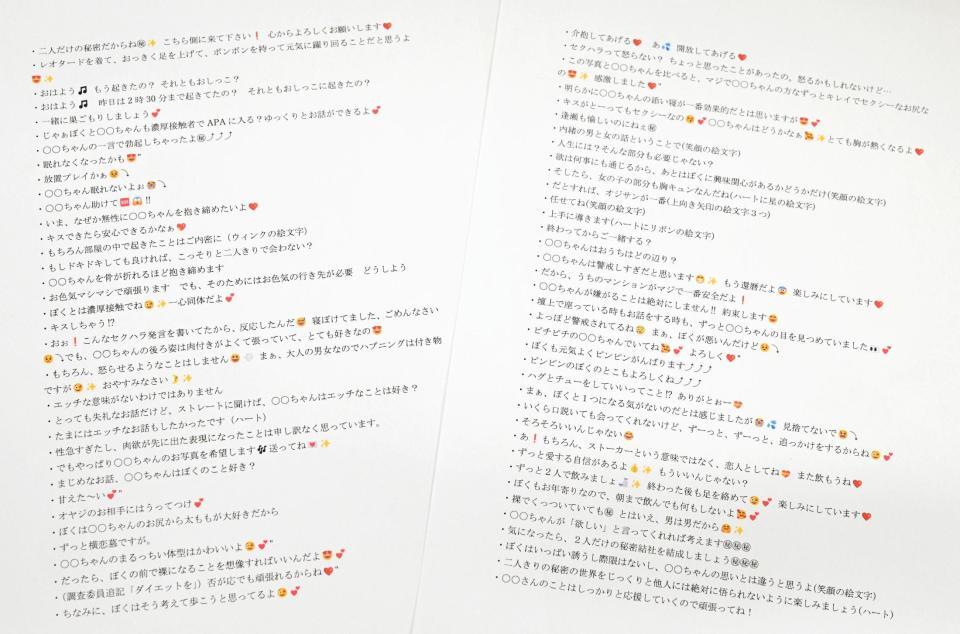 ・二人だけの秘密だからね㊙✨ こちら側に来て下さい❗ 心からよろしくお願いします❤
・レオタードを着て、おっきく足を上げて、ボンボンを持って元気に躍り回ることだと思うよ
😍✨
・おはよう🎵 もう起きたの？ それともおしっこ？
・おはよう🎵 昨日は２時30分まで起きてたの？ それともおしっこに起きたの？
・一緒に巣ごもりしましょう💕
・じゃぁぼくと〇〇ちゃんも濃厚接触者でAPAに入る？ゆっくりとお話ができるよ💕
・〇〇ちゃんの一言で勃起しちゃったよ㊙⤴⤴⤴
・眠れなくなったかも😍”
・放置プレイかぁ😣⤵
・〇〇ちゃん眠れないよぉ😭⤵
・〇〇ちゃん助けて🆘😱‼
・いま、なぜか無性に〇〇ちゃんを抱き締めたいよ❤
・キスできたら安心できるかなぁ❤
・もちろん部屋の中で起きたことはご内密に（ウィンクの絵文字）
・もしドキドキしても良ければ、こっそりと二人きりで会わない？
・〇〇ちゃんを骨が折れるほど抱き締めます
・お色気マシマシで頑張ります でも、そのためにはお色気の行き先が必要 どうしよう
・ぼくとは濃厚接触でね😉✨一心同体だよ💕
・キスしちゃう⁉
・おぉ❗こんなセクハラ発言を書いてたから、反応したんだ😅 寝ぼけてました、ごめんなさい
😣⤵でも、〇〇ちゃんの後ろ姿は肉付きがよくて張っていて、とても好きなの😍
・もちろん、怒らせるようなことはしません😃 まぁ、大人の男女なのでハプニングは付き物
ですが😉✨ おやすみなさい🌛✨
・エッチな意味がないわけではありません
・とっても失礼なお話だけど、ストレートに聞けば、〇〇ちゃんはエッチなことは好き？
・たまにはエッチなお話もしたかったです（ハート）
・性急すぎたし、肉欲が先に出た表現になったことは申し訳なく思っています。
・でもやっぱり〇〇ちゃんのお写真を希望します🎶送ってね💌✨
・まじめなお話、〇〇ちゃんはぼくのこと好き？
・甘えた〜い💕”
・オヤジのお相手にはうってつけ💕
・ぼくは〇〇ちゃんのお尻から太ももが大好きだから
・ずっと横恋慕ですが。
・〇〇ちゃんのまるっちい体型はかわいいよ😉💕”
・だったら、ぼくの前で裸になることを想像すればいいんだよ😍💕
・（調査委員追記「ダイエットを」）否が応でも頑張れるからね❤”
・ちなみに、ぼくはそう考えて歩こうと思ってるよ😉💕
・介抱してあげる❤ あ💦 開放してあげる❤
・セクハラって怒らない？ ちょっと思ったことがあったの。怒るかもしれないけど…
・この写真と〇〇ちゃんを比べると、マジで〇〇ちゃんの方なずっとキレイでセクシーなお尻な
の😍✨ 感激しました❤”
・明らかに〇〇ちゃんの添い寝が一番効果的だとは思いますが😍💕
・キスがとーってもセクシーなの😚💕〇〇ちゃんはどうかなぁ🥰✨とても胸が熱くなるよ❤
・逢瀬も愉しいのにねぇ㊙
・内緒の男と女の話ということで(笑顔の絵文字)
・人生には？そんな部分も必要じゃない？
・欲は何事にも通じるから、あとはぼくに興味関心があるかどうかだけ(笑顔の絵文字)
・そしたら、女の子の部分も胸キュンなんだね(ハートに星の絵文字)
・だとすれば、オジサンが一番(上向き矢印の絵文字３つ)
・任せてね(笑顔の絵文字)
・上手に導きます(ハートにリボンの絵文字)
・終わってからご一緒する？
・〇〇ちゃんはおうちはどの辺り？
・〇〇ちゃんは警戒しすぎだと思います😁✨ もう還暦だよ😨 楽しみにしています❤
・だから、うちのマンションがマジで一番安全だよ❗
・〇〇ちゃんが嫌がることは絶対にしません‼ 約束します😊
・壇上で座っている時もお話をする時も、ずっと〇〇ちゃんの目を見つめていました👀💕
・よっぽど警戒されてるね😥 まぁ、ぼくが悪いんだけど😣⤵
・ピチピチの〇〇ちゃんでいてね🥰💕 よろしく❤”
・ぼくも元気よくピンピンがんばります⤴⤴⤴
・ピンピンのぼくのとこもよろしくね⤴⤴⤴
・ハグとチューをしていいってこと⁉ ありがとぉー😍
・まぁ、ぼくと１つになる気がないのだとは感じましたが😭💦 見捨てないで😫⤵
・いくら口説いても会ってくれないけど、ずーっと、ずーっと、追っかけをするからね😉💕
・そろそろいいんじゃない😂
・あ❗もちろん、ストーカーという意味ではなく、恋人としてね💝 また飲もうね❤
・ずっと愛する自信があるよ👍✨ もういいんじゃない？
・ずっと２人で飲みましょ🍶✨ 終わった後も足を絡めて😉💕 楽しみにしています❤
・ぼくもお年寄りなので、朝まで飲んでも何もしないよ🥰💕
・裸でくっついていても㊙ とはいえ、男は男だから🤗✨
・〇〇ちゃんが「欲しい」と言ってくれれば考えます㊙㊙㊙
・気になったら、２人だけの秘密結社を結成しましょう㊙㊙㊙
・ぼくはいっぱい誘うし際限はないし、〇〇ちゃんの思いとは違うと思うよ(笑顔の絵文字)
・二人きりの秘密の世界をじっくりと他人には絶対に悟られないように楽しみましょう(ハート)
・〇〇さんのことはしっかりと応援していくので頑張ってね！